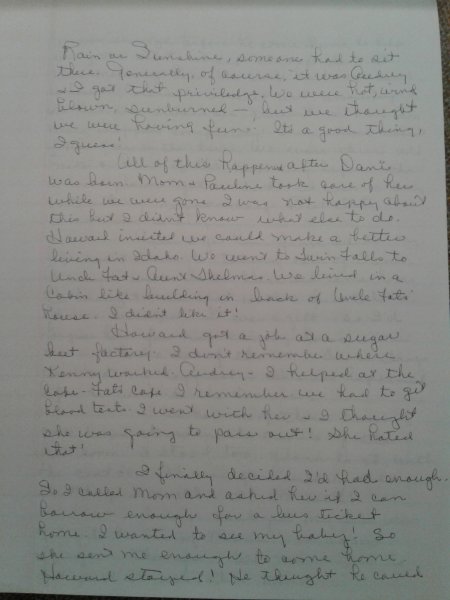 Rain or Sunshine, someone had to sit
there. Generally, of course, it was Audrey
& I got that priviledge. We were hot, wind
blown, sunburned — but we thought
we were having fun. Its a good thing,
I guess!
All of this happened after Dani
was born. Mom & Pauline took care of her
while we were gone. I was not happy about
this but I didn't know what else to do.
Howard insisted we could make a better
living in Idaho. We went to Twin Falls to
Uncle Fat & Aunt Thelmas. We lived in a
Cabin like building in back of Uncle Fats
house. I didn't like it!
Howard got a job at a sugar
beet factory. I don't remember where
Kenny worked. Audrey & I helped at the
cafe - Fats cafe. I remember we had to get
blood tests. I went with her & I thought
she was going to pass out! She hated
that!
I finally decided I'd had enough.
So I called Mom and asked her if I can
borrow enough for a bus ticket
home. I wanted to see my baby! So
she sent me enough to come home.
Howard stayed! He thought he could